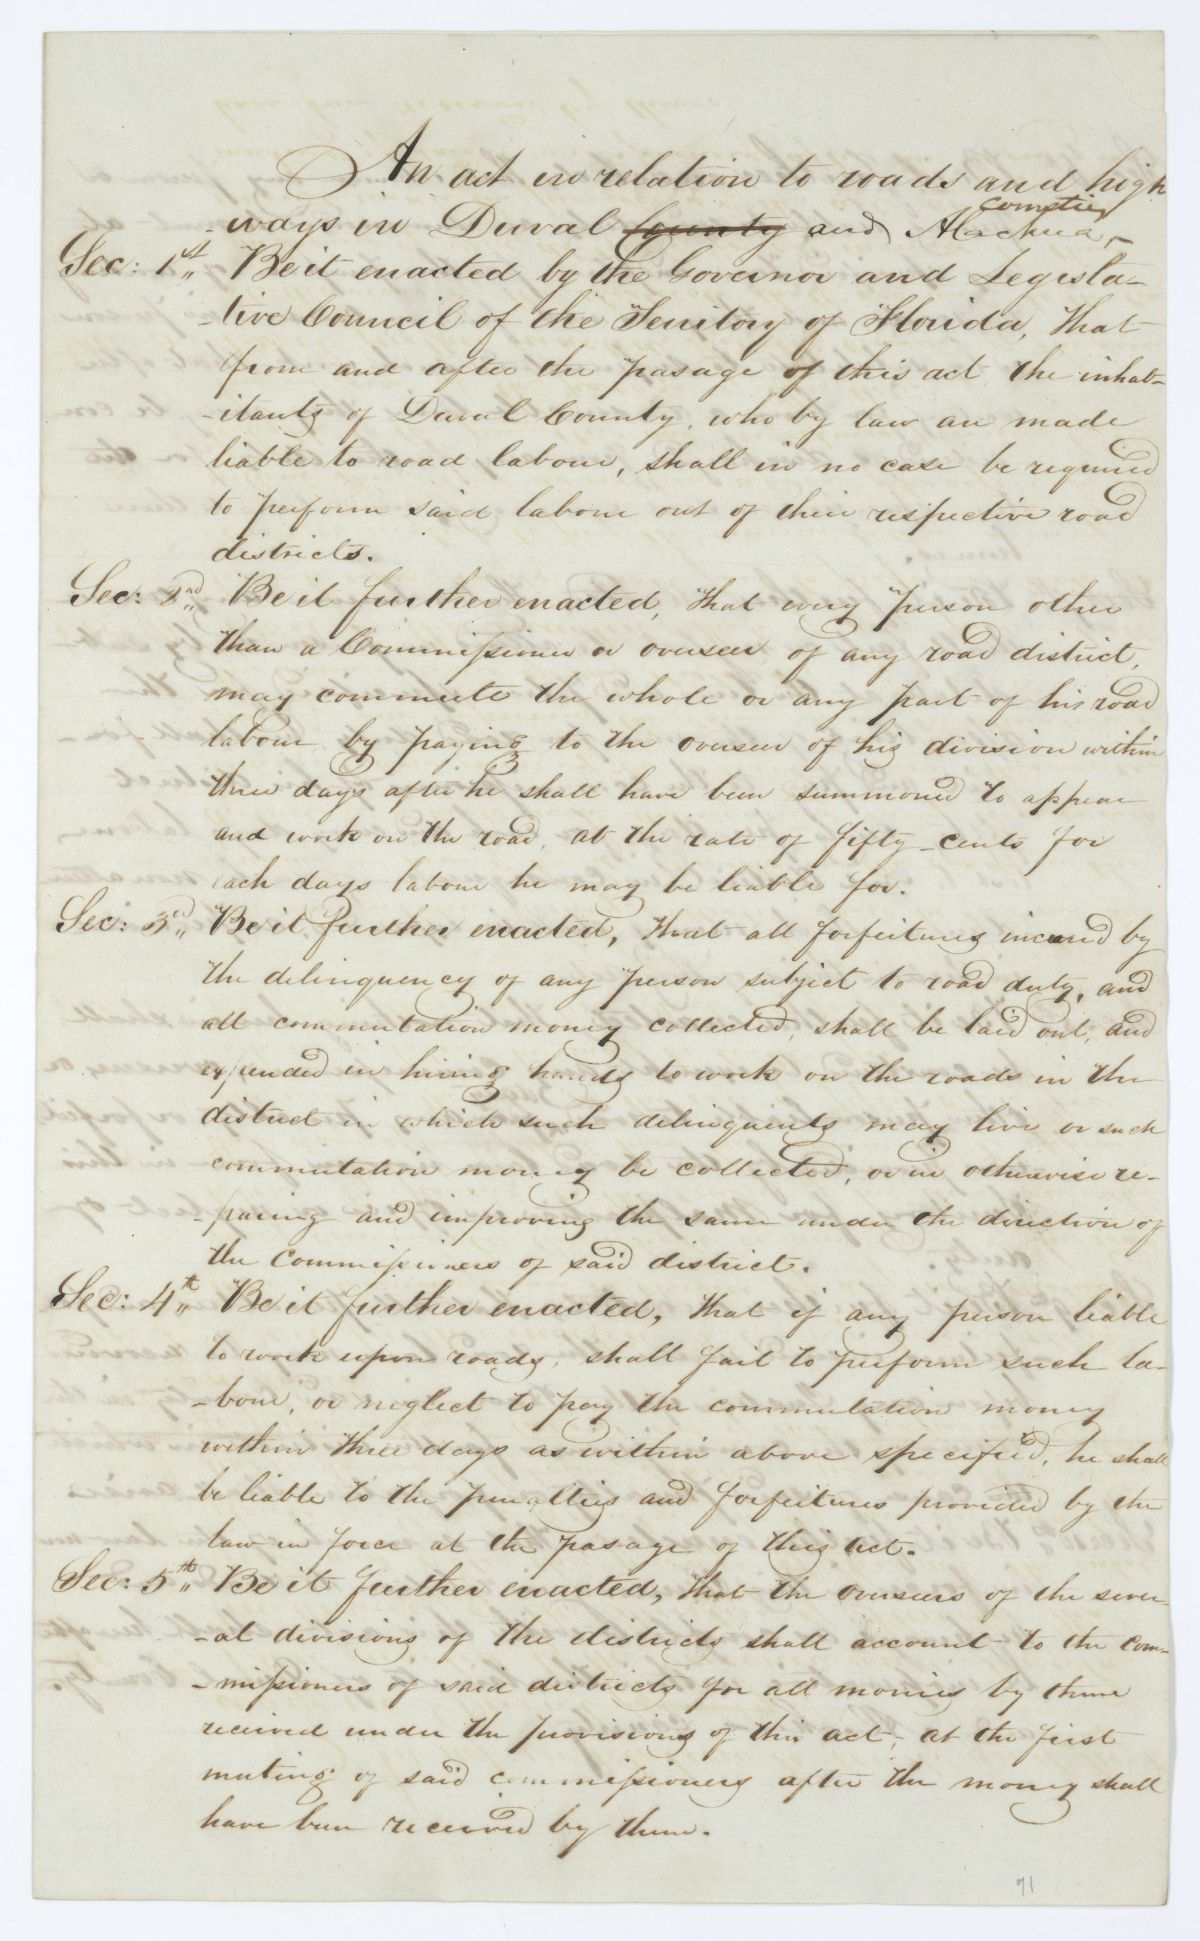 An act in relation to roads and high
-ways in Duval County and Alachua counties
Sec: 1st Be it enacted by the Governor and Legisla-
-tive Council of the Territory of Florida, That
from and after the pasage of this act the inhab-
-itants of Duval County, who by law are made
liable to road labour, shall in no case be required
to perform said labour out of their respective road
districts.
Sec: 2nd Be it further enacted, That every person other
than a Commissioner or overseer of any road district,
may commute the whole or any part of his road
labour by paying to the overseer of his division within
three days after he shall have been summoned to appear
and work on the road, at the rate of fifty-cents for
each days labour he may be liable for.
Sec: 3d Be it further enacted, That all forfeitures incured by
the delinquency of any person subject to road duty, and
all commutation money collected, shall be laid out, and
expended in hiring hands to work on the roads in the
district in which such delinquents may live or such
commutation money be collected, or in otherwise re-
-pairing and improving the same under the direction of
the commissioners of said district.
Sec: 4th Be it further enacted, That if any person liable
to work upon roads, shall fail to perform such la-
-bour, or neglect to pay the commutation money
within three days as within above specified, he shall
be liable to the penalties and forfeitures provided by the
law in force at the pasage of this act.
Sec: 5th Be it further enacted, That the overseers of the sever
-al divisions of the districts shall account to the com-
-missioners of said districts for all monies by them
received under the provisions of this act, at the first
meeting of said commissioners after the money shall
have been received by them.
71